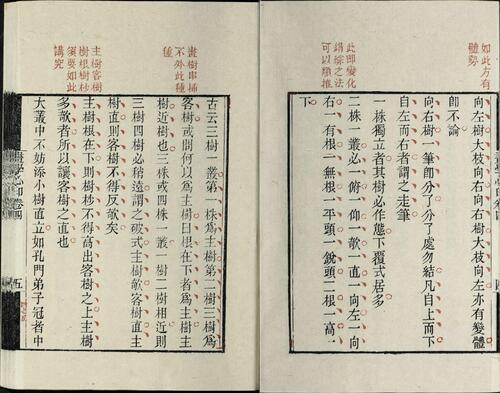 如此方有
體勢
向左樹大枝向右向右樹大枝向左亦有變體
卽不論
向右樹一筆卽分了分了處勿結凡自上而下
自左而右者謂之走筆
此卽變化
錯綜之法
可以類推
一株獨立者其樹必作態下覆式居多
二株一叢必一俯一仰一欹一直一向左一向
右一有根一無根一平頭一銳頭二根一高一
下
畫樹串插
不外此種
種
古云三樹一叢第一株爲主樹第二樹三樹爲
客樹或問何以爲主樹曰根在下者爲主樹主
樹近樹也三株或四株一叢一樹二樹相近則
三樹四樹必稍遠謂之破式主樹欹客樹直主
樹直則客樹不得反欹矣
主樹客樹
樹根樹杪
須要如此
講究
主樹根在下則樹杪不得高出客樹之上主樹
多欹者所以讓客樹之直也
大叢中不妨添小樹直立如孔門弟子冠者中
畫學心印卷四
五